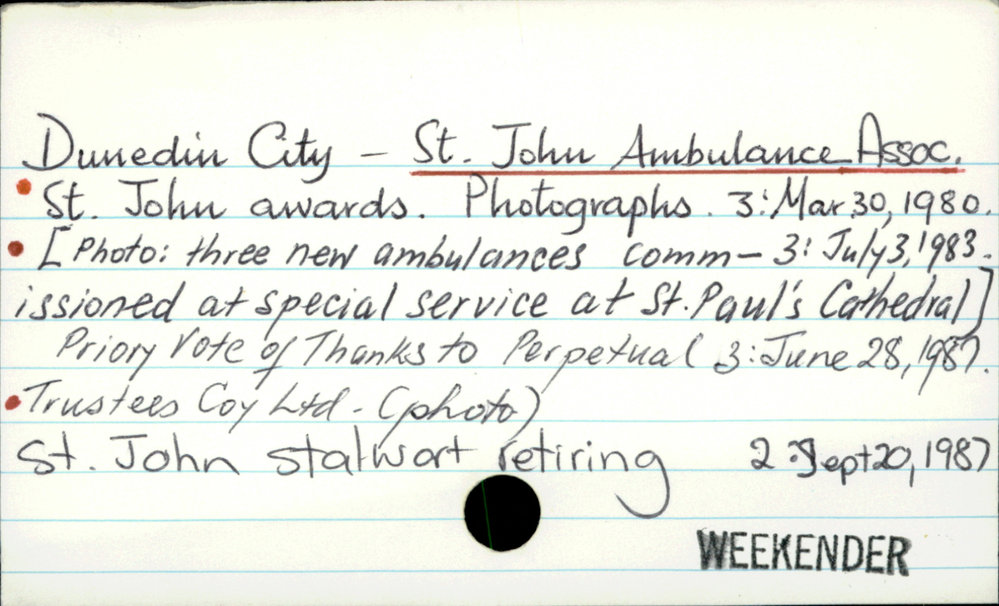 Dunedin City - St. John Ambulance Assoc.
St. John awards. Photographs. 3: Mar 30, 1980.
[Photo: three new ambulances comm- 3: July 3, 1983.
issioned at special service at St. Paul's Cathedral]
Priory Vote of Thanks to Perpetual ( 3: June 28, 1987.
Trustees Coy Ltd. - (photo)
St. John stalwart retiring 2: Sept 20, 1987
WEEKENDER